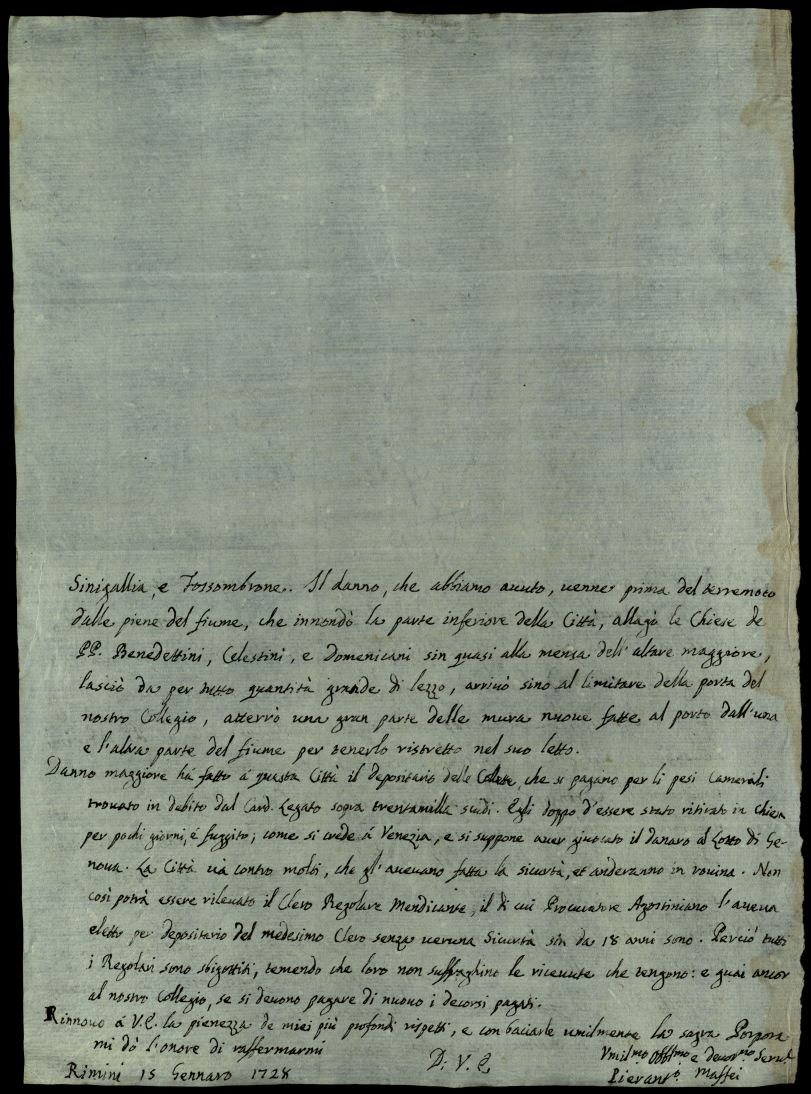 Sinigallia, e Fossombrone. Il danno, che abbiamo auuto, uenne prima del terremoto
dalle piene del fiume, che innondò la parte inferiore della Città, allagò le Chiese de
PP. Benedettini, Celestini, e Domenicani sin quasi alla mensa dell'altare maggiore,
lasciò da per tutto quantità grande di lezzo, arriuò sino al limitare della porta del
nostro Collegio, atterrò una gran parte delle mura nuoue fatte al porto dall'una
e l'altra parte del fiume per tenerlo ristretto nel suo letto.
Danno maggiore há fatto á questa Città il depositario delle Collette, che si pagano per li pesi Camerali
trouato in debito dal Card. Legato sopra trentamilla scudi. Egli doppo d'essere stato ritirato in Chiesa
per pochi giorni, é fuggito; come si crede á Venezia, e si suppone auer giuocato il danaro al Lotto di Ge-
noua. La Città uà contro molti, che gl'aueuano fatta la sicurtà, et anderanno in rouina. Non
così potrà essere rileuato il Clero Regolare Mendicante, il di cui Procuratore Agostiniano l'aueua
eletto per depositario del medesimo Clero senza ueruna Sicurtà sin da 18 anni sono. Perciò tutti
i Regolari sono sbigottiti, temendo che loro non suffraghino le riceuute che tengono: e guai ancor
al nostro Collegio, se si deuono pagare di nuouo i decorsi pagati.
Rinnouo á V.E. la pienezza de miei più profondi rispetti, e con baciarle umilmente la sagra Porpora
mi dò l'onore di raffermarmi
D. V. E.
Vmil.mo Obblmo e deuot.mo Seru.
Rimini 15 Gennaro 1728
Pierant.o Maffei